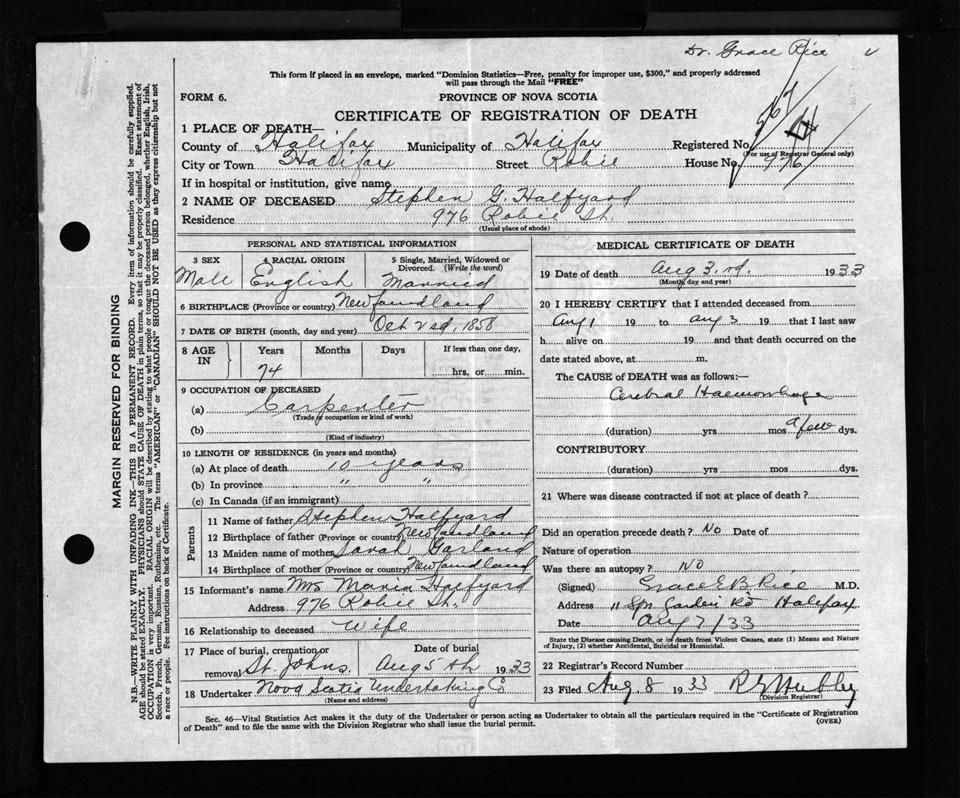 Dr. Grace Rice
This form if placed in an envelope, marked "Dominion Statistics—Free, penalty for improper use, $300," and properly addressed
will pass through the Mail "FREE"
FORM 6.
PROVINCE OF NOVA SCOTIA
CERTIFICATE OF REGISTRATION OF DEATH
1 PLACE OF DEATH—
County of Halifax Municipality of Halifax Registered No.
(For use of Registrar General only)
City or Town Halifax Street Robie House No. 976
If in hospital or institution, give name
2 NAME OF DECEASED Stephen G. Halfyard
Residence 976 Robie St.
(Usual place of abode)
PERSONAL AND STATISTICAL INFORMATION
3 SEX 4 RACIAL ORIGIN 5 Single, Married, Widowed or
Divorced. (Write the word)
Male English Married
6 BIRTHPLACE (Province or country) Newfoundland
7 DATE OF BIRTH (month, day and year) Oct 2nd, 1858
8 AGE IN Years Months Days If less than one day,
74 hrs. or min.
9 OCCUPATION OF DECEASED
(a) Carpenter
(Trade, occupation or kind of work)
(b)
(Kind of industry)
10 LENGTH OF RESIDENCE (in years and months)
(a) At place of death 10 years
(b) In province " "
(c) In Canada (if an immigrant)
Parents
11 Name of father Stephen Halfyard
12 Birthplace of father (Province or country) Newfoundland
13 Maiden name of mother Sarah Garland
14 Birthplace of mother (Province or country) Newfoundland
15 Informant's name Mrs Maria Halfyard
Address 976 Robie St.
16 Relationship to deceased Wife
17 Place of burial, cremation or Date of burial
removal St. Johns Aug 5th 1933
18 Undertaker Nova Scotia Undertaking Co
(Name and address)
MEDICAL CERTIFICATE OF DEATH
19 Date of death Aug 3rd. 1933
(Month, day and year)
20 I HEREBY CERTIFY that I attended deceased from
Aug 1 19 to Aug 3 19 that I last saw
h alive on 19 and that death occurred on the
date stated above, at m.
The CAUSE of DEATH was as follows:—
Cerebral Haemorrhage
(duration) yrs mos a few dys.
CONTRIBUTORY
(duration) yrs mos dys.
21 Where was disease contracted if not at place of death?
Did an operation precede death? No Date of
Nature of operation
Was there an autopsy? No
(Signed) Grace E B Rice M.D.
Address 11 Spr Garden Rd Halifax
Date Aug 7/33
State the Disease causing Death, or in death from Violent Causes, state (1) Means and Nature
of Injury, (2) whether Accidental, Suicidal or Homicidal.
22 Registrar's Record Number
23 Filed Aug. 8 1933
(Division Registrar)
Sec. 46—Vital Statistics Act makes it the duty of the Undertaker or person acting as Undertaker to obtain all the particulars required in the "Certificate of Registration
of Death" and to file the same with the Division Registrar who shall issue the burial permit. (OVER)
MARGIN RESERVED FOR BINDING
N.B.—WRITE PLAINLY WITH UNFADING INK—THIS IS A PERMANENT RECORD. Every item of information should be carefully supplied.
AGE should be stated EXACTLY. PHYSICIANS should STATE CAUSE OF DEATH in plain terms, so that it may be properly classified. Exact statement of
OCCUPATION is very important. RACIAL ORIGIN will be described by stating to what people or tongue the deceased person belonged, whether English, Irish,
Scotch, French, German, Russian, Ruthenian, etc. The terms "AMERICAN" or "CANADIAN" SHOULD NOT BE USED as they express citizenship but not
a race or people. See instructions on back of Certificate.